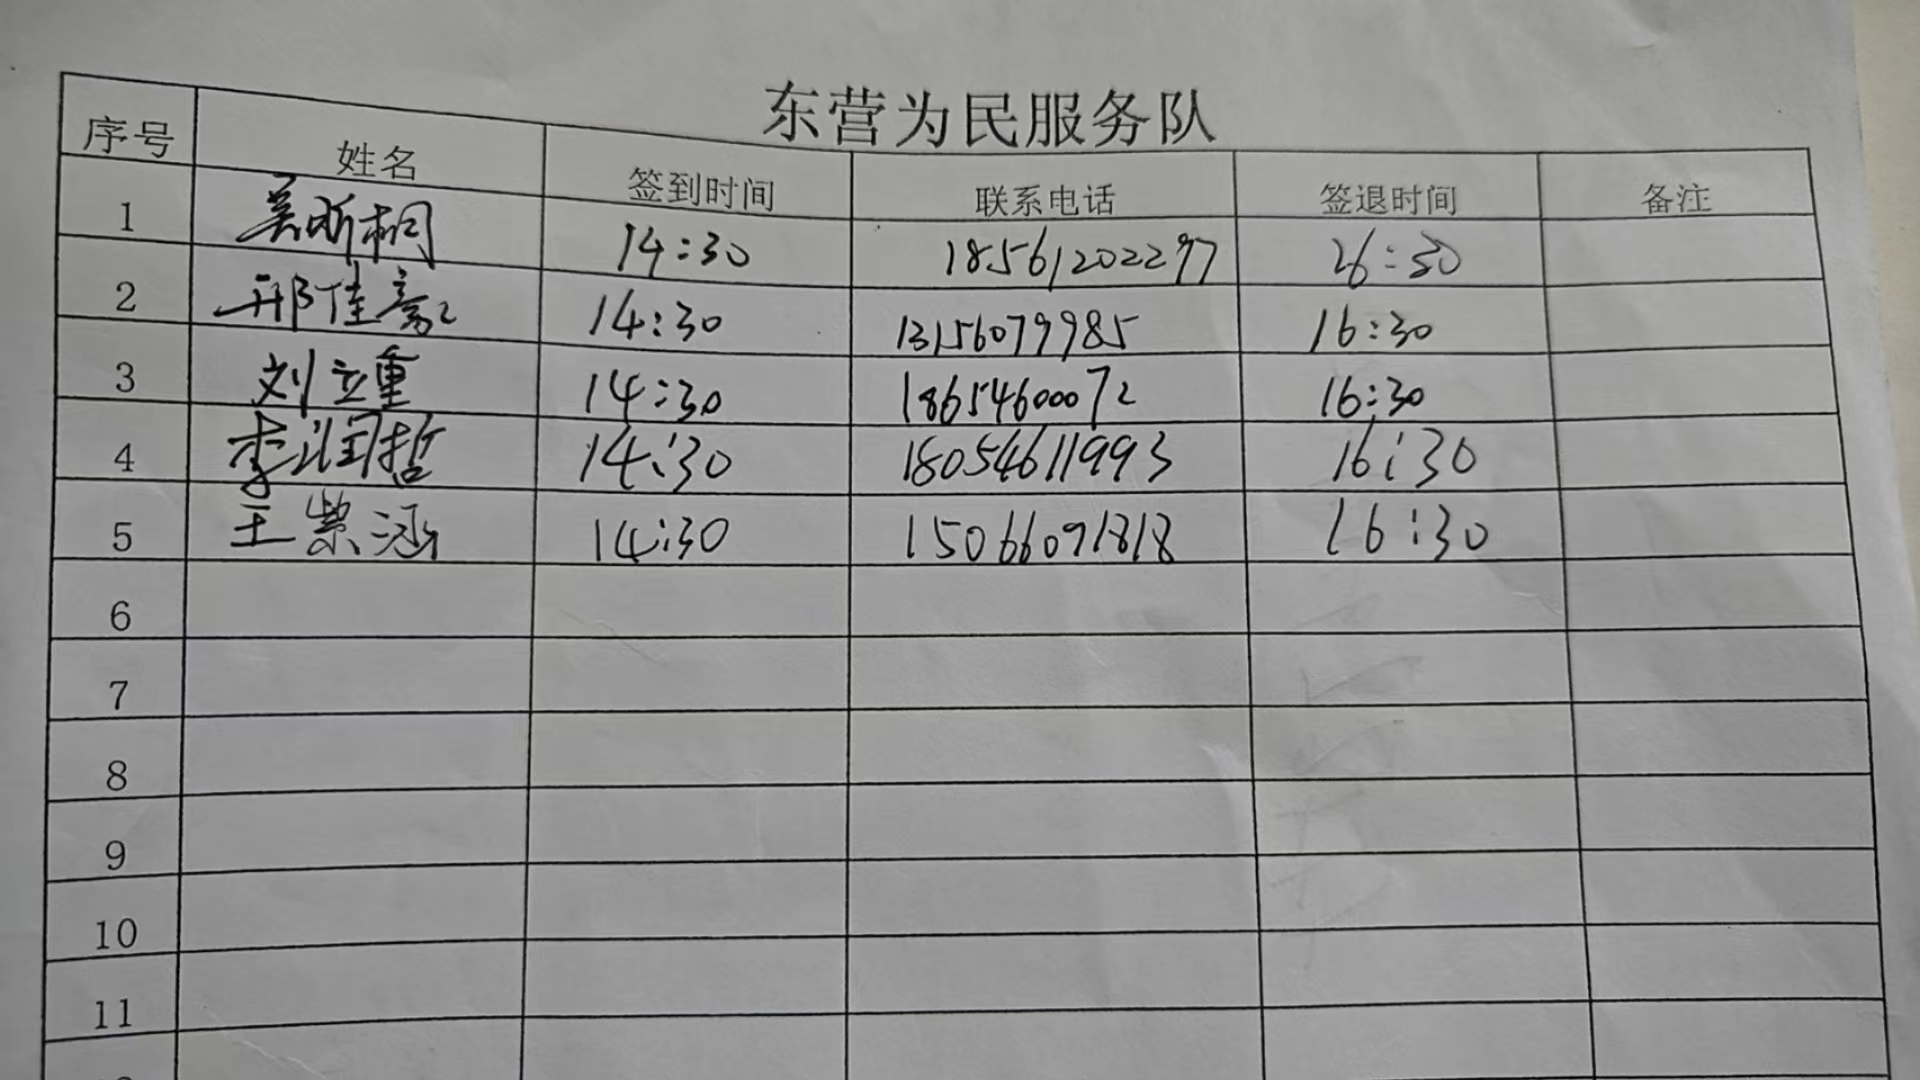 东营为民服务队
序号 姓名 签到时间 联系电话 签退时间 备注
1 吴昕桐 14:30 18561202297 26:30
2 邢佳 14:30 13156079985 16:30
3 刘立重 14:30 18654600072 16:30
4 李润哲 14:30 18054611993 16:30
5 王紫涵 14:30 15066091818 16:30
6
7
8
9
10
11